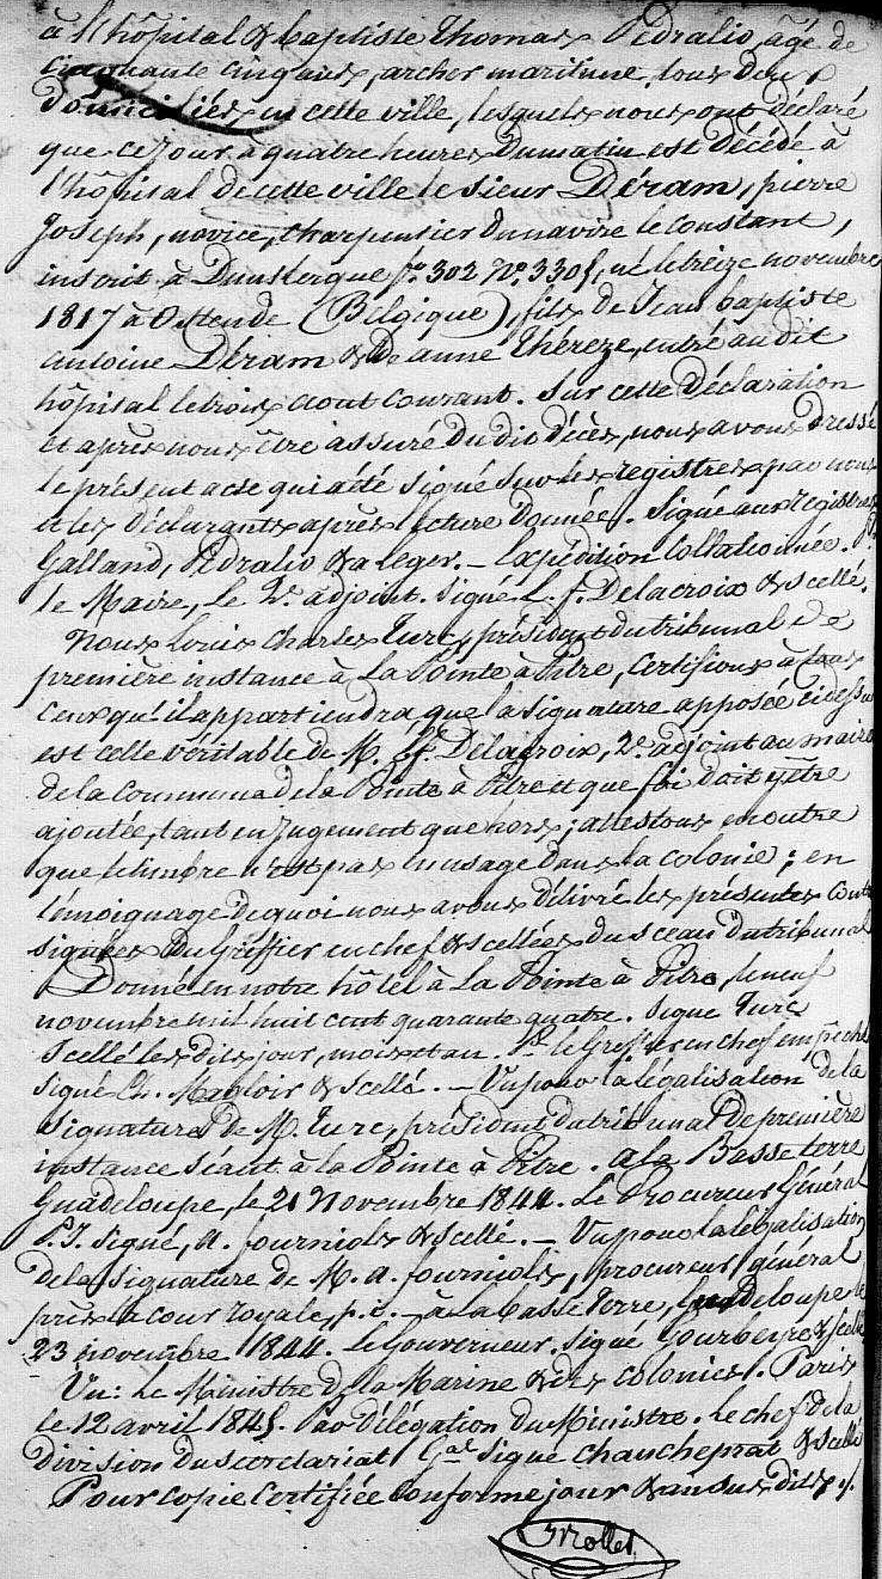 à l'hôpital & baptiste Thomas Pédralio, âgé de
cinquante cinq ans, archer maritime, tous deux
Domiciliés en cette ville, lesquels nous ont déclaré
que ce jour à quatre heures du matin est décédé à
l'hôpital de cette ville le sieur Déram, pierre
Joseph, novice, charpentier du navire le Constant,
inscrit à Dunkerque fo. 302 No. 3305, né le treize novembre
1817 à Ostende (Belgique), fils de Jean baptiste
antoine Déram & de anne Théreze, entré au dit
hôpital le trois aout courant. Sur cette Déclaration
et après nous être assuré du dit décès, nous avons Dressé
le présent acte qui a été signé sur les registres par nous
et les Déclarants après lecture Donnée. Signé aux registres
Galland, Pédralio & a leger. — Expédition Collationnée.
le Maire, Le 2e. adjoint. Signé L. f. Delacroix & scellé.
Nous Louis Charles Turc, président du tribunal de
première instance à La Pointe à Pitre, Certifions à tous
ceux qu'il appartiendra que la signature apposée ci dessus
est celle véritable de M. L. f. Delacroix, 2e. adjoint au maire
de la Commune de la Pointe à Pitre et que foi doit y être
ajoutée, tant en jugement que hors; attestons en outre
que le timbre n'est pas en usage dans la colonie; en
témoignage de quoi nous avons délivré les présentes contre
signées du Greffier en chef & scellées du sceau du tribunal
Donné en notre hôtel à La Pointe à Pitre, le neuf
novembre mil huit cent quarante quatre. Signé Turc
Scellé les dits jour, mois et an. Pr. le Greffier en chef empêché
signé Ch. Magloir & scellé. — Vu pour la légalisation de la
signature de M. Turc, président du tribunal de première
instance séant à la Pointe à Pitre. a la Basse terre
Guadeloupe, le 21 Novembre 1844. Le Procureur Général
P.I. signé, A. fourniols & scellé. — Vu pour la légalisation
de la signature de M. A. fourniols, procureur général
près la cour royale, p. i. — à La basse Terre, Guadeloupe le
23 novembre 1844. Le Gouverneur. Signé Gourbeyre & scellé
Vu: Le Ministre de la Marine & des colonies. Paris
le 12 avril 1845. Par Délégation du Ministre. Le chef de la
division du secrétariat Gal signé chaucheprat & scellé
Pour copie Certifiée Conforme jour & an sus dits ./.